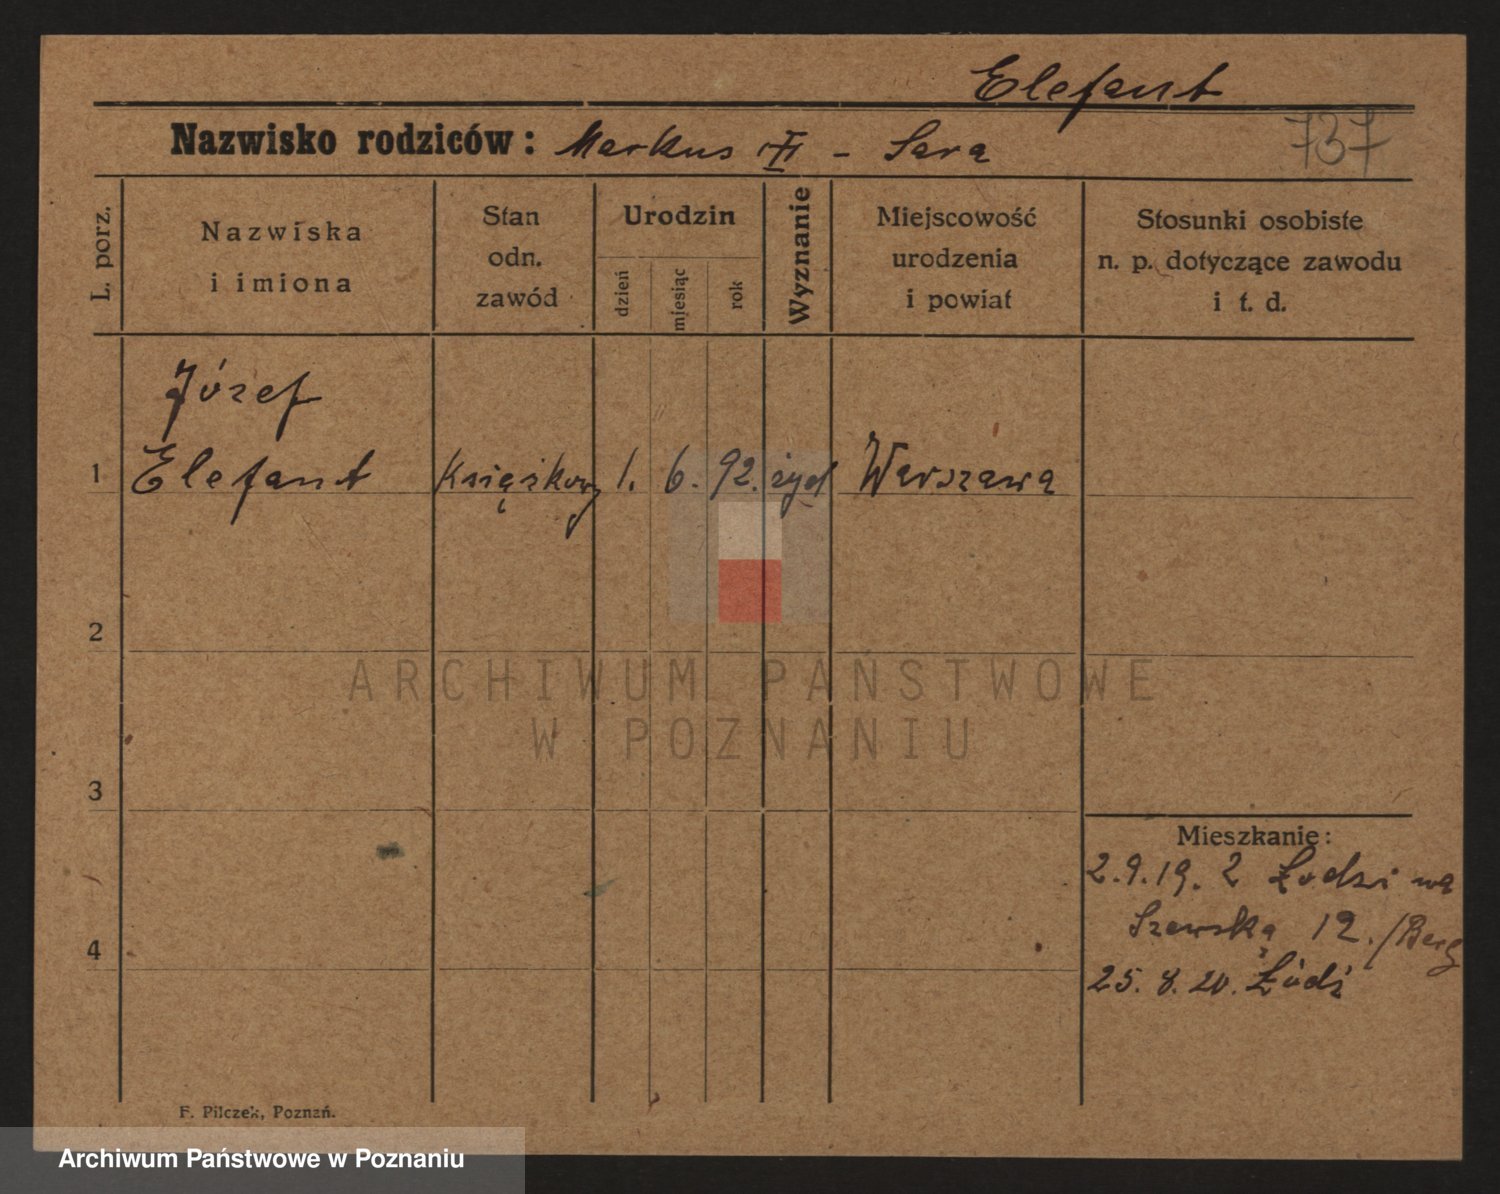 Elefant
Nazwisko rodziców: Markus - Sara
737
L. porz.
Nazwiska
i imiona
Stan
odn.
zawód
Urodzin
dzień
miesiąc
rok
Wyznanie
Miejscowość
urodzenia
i powiat
Stosunki osobiste
n. p. dotyczące zawodu
i t. d.
Józef
1 Elefant Książkowy 1. 6. 92. żyd Warszawa
2
ARCHIWUM PAŃSTWOWE
W POZNANIU
3
Mieszkanie:
2.9.19. z Łodzi na
Szewską 12./Berg
4
25. 8. 20. Łódź
F. Pilczek, Poznań.
Archiwum Państwowe w Poznaniu